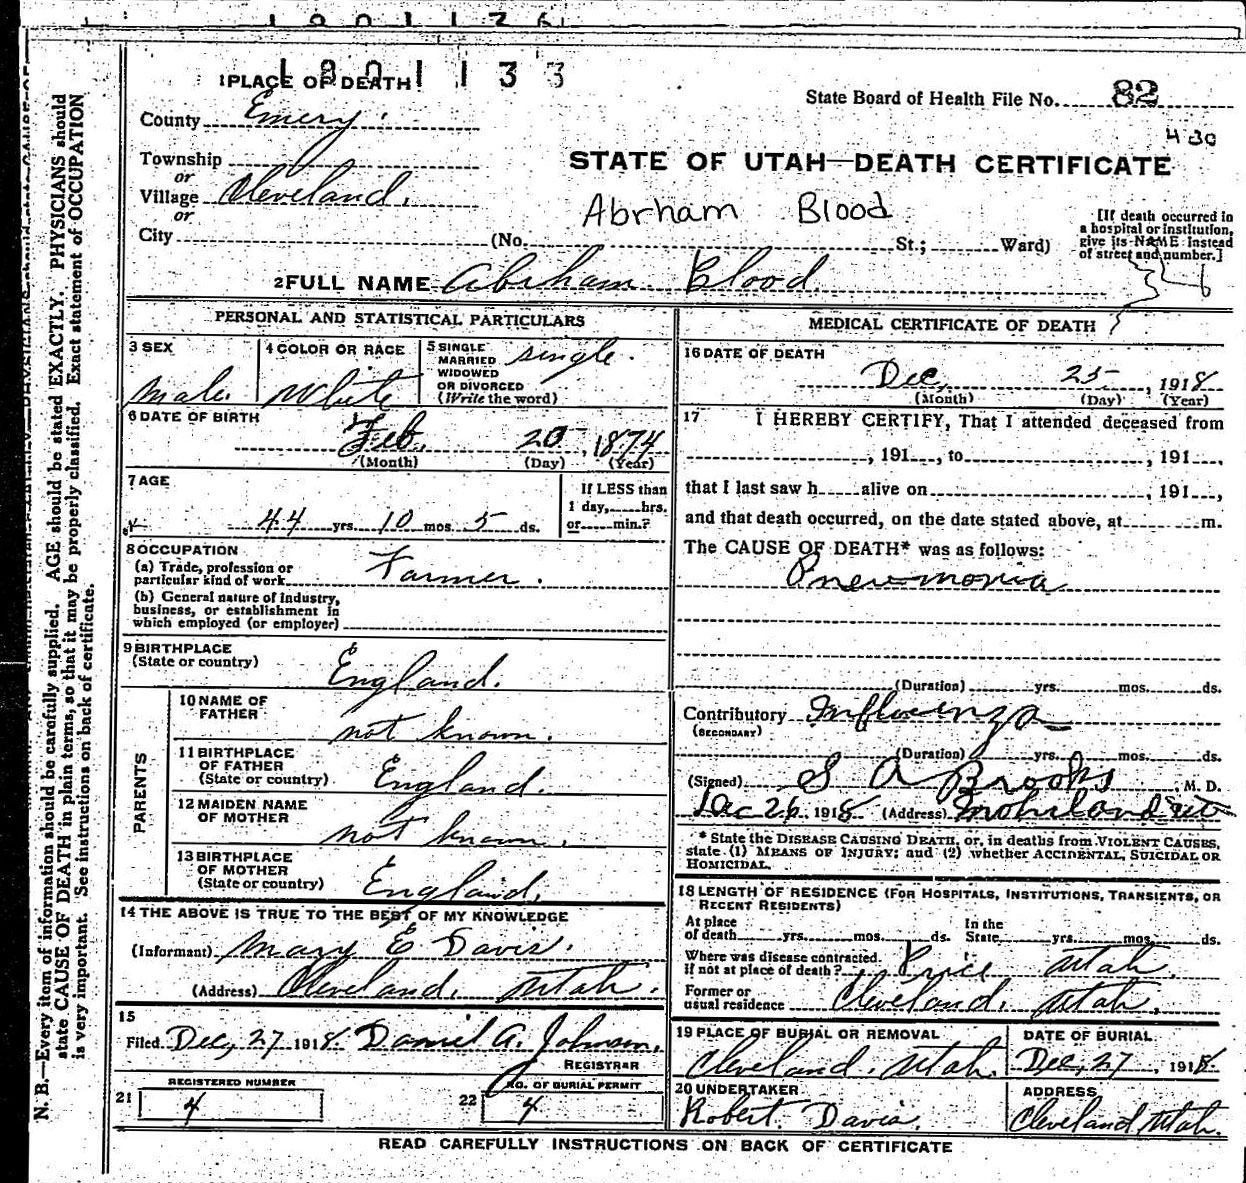 1901133
1 PLACE OF DEATH
State Board of Health File No. 82
County Emery.
430
Township
or
Village Cleveland.
or
City
STATE OF UTAH—DEATH CERTIFICATE
Abrham Blood
(No. St.; Ward)
[If death occurred in
a hospital or institution,
give its NAME instead
of street and number.]
2 FULL NAME Abrham Blood.
PERSONAL AND STATISTICAL PARTICULARS
3 SEX
Male.
4 COLOR OR RACE
White
5 SINGLE
MARRIED
WIDOWED
OR DIVORCED
(Write the word)
single.
6 DATE OF BIRTH
Feb. 20, 1874
(Month) (Day) (Year)
7 AGE
44 yrs. 10 mos. 5 ds.
If LESS than
1 day, hrs.
or min.?
8 OCCUPATION
(a) Trade, profession or
particular kind of work Farmer.
(b) General nature of industry,
business, or establishment in
which employed (or employer)
9 BIRTHPLACE
(State or country)
England.
PARENTS
10 NAME OF
FATHER
not known.
11 BIRTHPLACE
OF FATHER
(State or country)
England.
12 MAIDEN NAME
OF MOTHER
not known.
13 BIRTHPLACE
OF MOTHER
(State or country)
England.
14 THE ABOVE IS TRUE TO THE BEST OF MY KNOWLEDGE
(Informant) Mary E Davis.
(Address) Cleveland. Utah.
15
Filed Dec, 27 1918. Daniel A. Johnson.
REGISTRAR
REGISTERED NUMBER
21 4
NO. OF BURIAL PERMIT
22 4
MEDICAL CERTIFICATE OF DEATH
16 DATE OF DEATH
Dec, 25, 1918
(Month) (Day) (Year)
17 I HEREBY CERTIFY, That I attended deceased from
, 191 , to , 191 ,
that I last saw h alive on , 191 ,
and that death occurred, on the date stated above, at m.
The CAUSE OF DEATH* was as follows:
Pneumonia
(Duration) yrs. mos. ds.
Contributory Influenza
(SECONDARY)
(Duration) yrs. mos. ds.
(Signed) S A Brooks, M. D.
Dec 26, 1918 (Address) Mohrland Ut
* State the DISEASE CAUSING DEATH, or, in deaths from VIOLENT CAUSES,
state (1) MEANS OF INJURY; and (2) whether ACCIDENTAL, SUICIDAL OR
HOMICIDAL.
18 LENGTH OF RESIDENCE (FOR HOSPITALS, INSTITUTIONS, TRANSIENTS, OR
RECENT RESIDENTS)
At place
of death yrs. mos. ds.
In the
State yrs. mos. ds.
Where was disease contracted
if not at place of death? Price Utah.
Former or
usual residence Cleveland. Utah.
19 PLACE OF BURIAL OR REMOVAL
Cleveland. Utah.
DATE OF BURIAL
Dec, 27, 1918.
20 UNDERTAKER
Robert Davis.
ADDRESS
Cleveland, Utah.
READ CAREFULLY INSTRUCTIONS ON BACK OF CERTIFICATE
N. B.—Every item of information should be carefully supplied. AGE should be stated EXACTLY. PHYSICIANS should
state CAUSE OF DEATH in plain terms, so that it may be properly classified. Exact statement of OCCUPATION
is very important. See instructions on back of certificate.